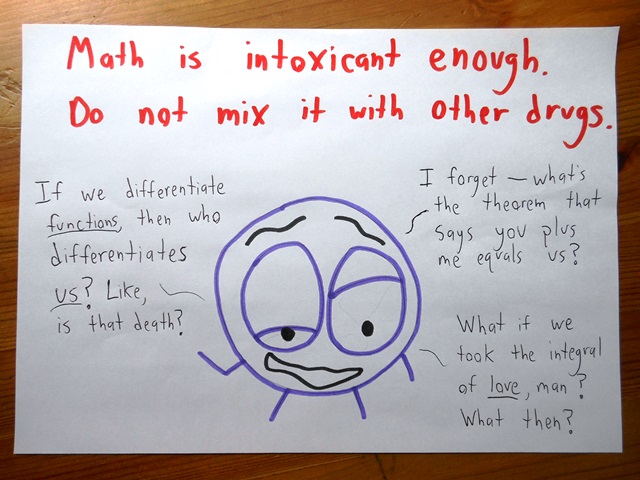 Math is intoxicant enough.
Do not mix it with other drugs.
If we differentiate
functions, then who
differentiates
us? Like,
is that death?
I forget – what's
the theorem that
says you plus
me equals us?
What if we
took the integral
of love, man?
What then?